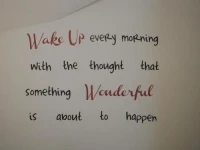 Wake Up every morning
with the thought that
something Wonderful
is about to happen